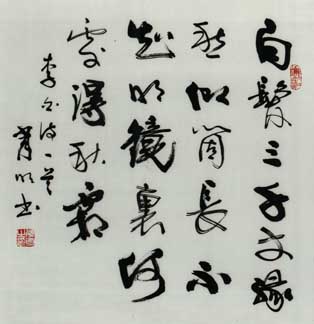 白髮三千丈緣
愁似箇長不
知明鏡裏何
處得秋霜
李白诗一首
书